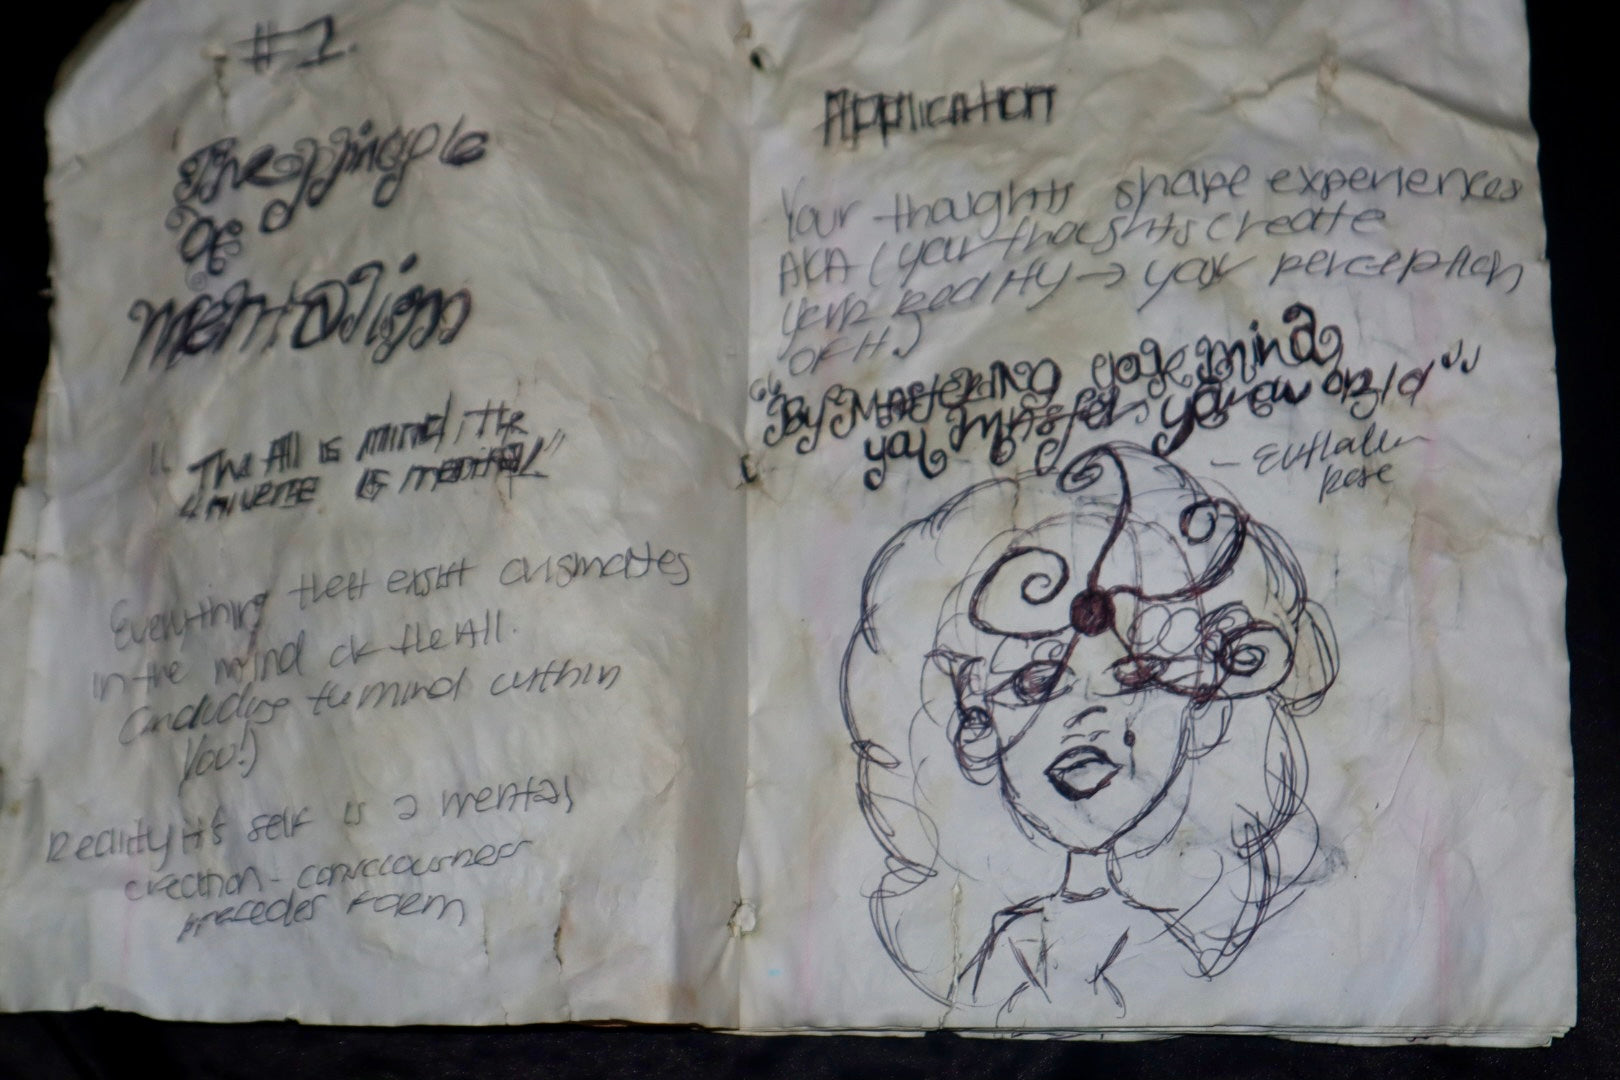 #1.
The
of
mentalism
"The All is mind; the
universe is mental"
Everything thett exsist
in the mind of the All.
the mind within
You!)
Reality it's self is a mental
creation - consciousness
precedes Form
Application
Your thoughts shape experiences
AKA (your thoughts create
your reality → your perception
of it)
"By Mastering your mind
you master your world"
Rose